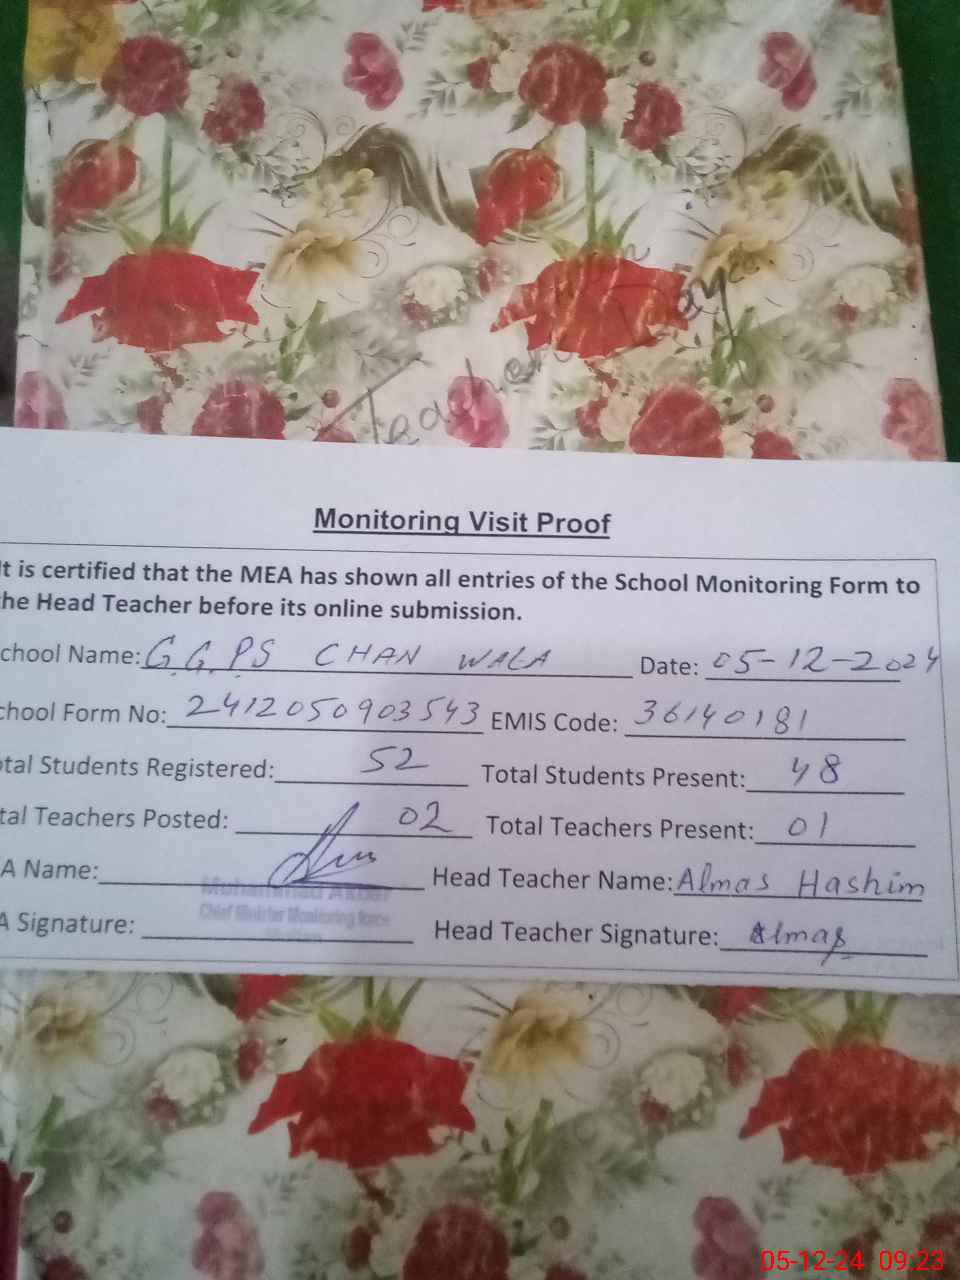 Teacher
Monitoring Visit Proof
It is certified that the MEA has shown all entries of the School Monitoring Form to
the Head Teacher before its online submission.
chool Name: G.G.P.S CHAN WALA Date: 05-12-2024
chool Form No: 2412050903543 EMIS Code: 36140181
otal Students Registered: 52 Total Students Present: 48
tal Teachers Posted: 02 Total Teachers Present: 01
A Name: Head Teacher Name: Almas Hashim
Muhammad Akbar
Chief Minister Monitoring force
A Signature: Head Teacher Signature: Almas
05-12-24 09:23